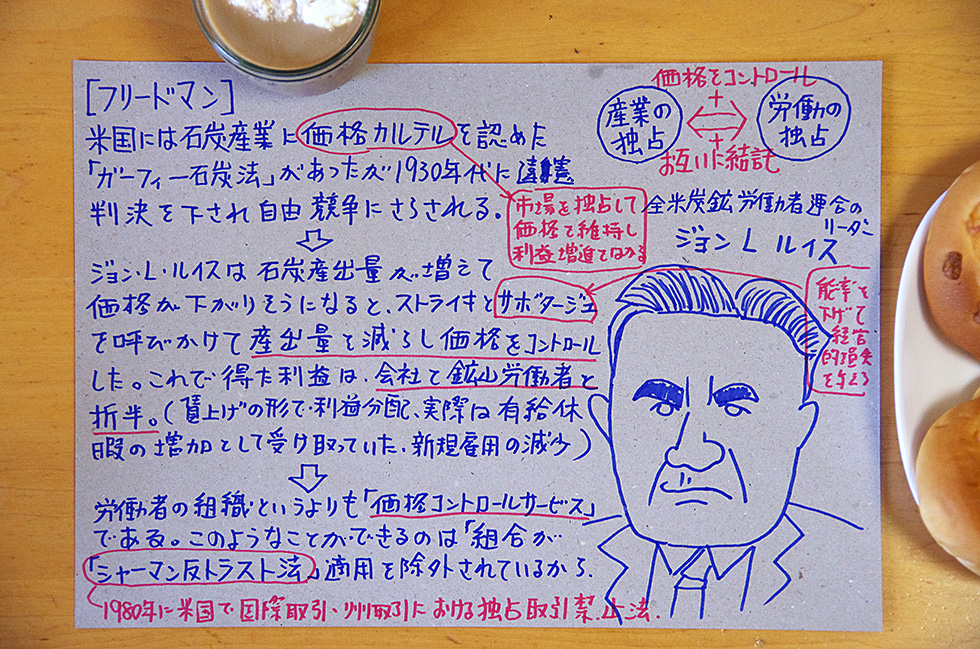 [フリードマン]
米国には石炭産業に価格カルテルを認めた
「ガーフィー石炭法」があったが1930年代に違憲
判決を下され自由競争にさらされる。
⇩
ジョン・L・ルイスは石炭産出量が増えて
価格が下がりそうになると、ストライキとサボタージュ
を呼びかけて産出量を減らし価格をコントロール
した。これで得た利益は、会社と鉱山労働者と
折半。(賃上げの形で利益分配、実際は有給休
暇の増加として受け取っていた、新規雇用の減少)
⇩
労働者の組織というよりも「価格コントロールサービス」
である。このようなことができるのは「組合が
「シャーマン反トラスト法」適用を除外されているから.
1980年に米国で国際取引・州取引における独占取引禁止法.
価格をコントロール
産業の
独占
+
⇔
+
労働の
独占
お互いに結託
市場を独占して
価格を維持し
利益増進をはかる
全米炭鉱労働者連合の
リーダー
ジョン L ルイス
能率を
下げて
経営
的損失
を与える